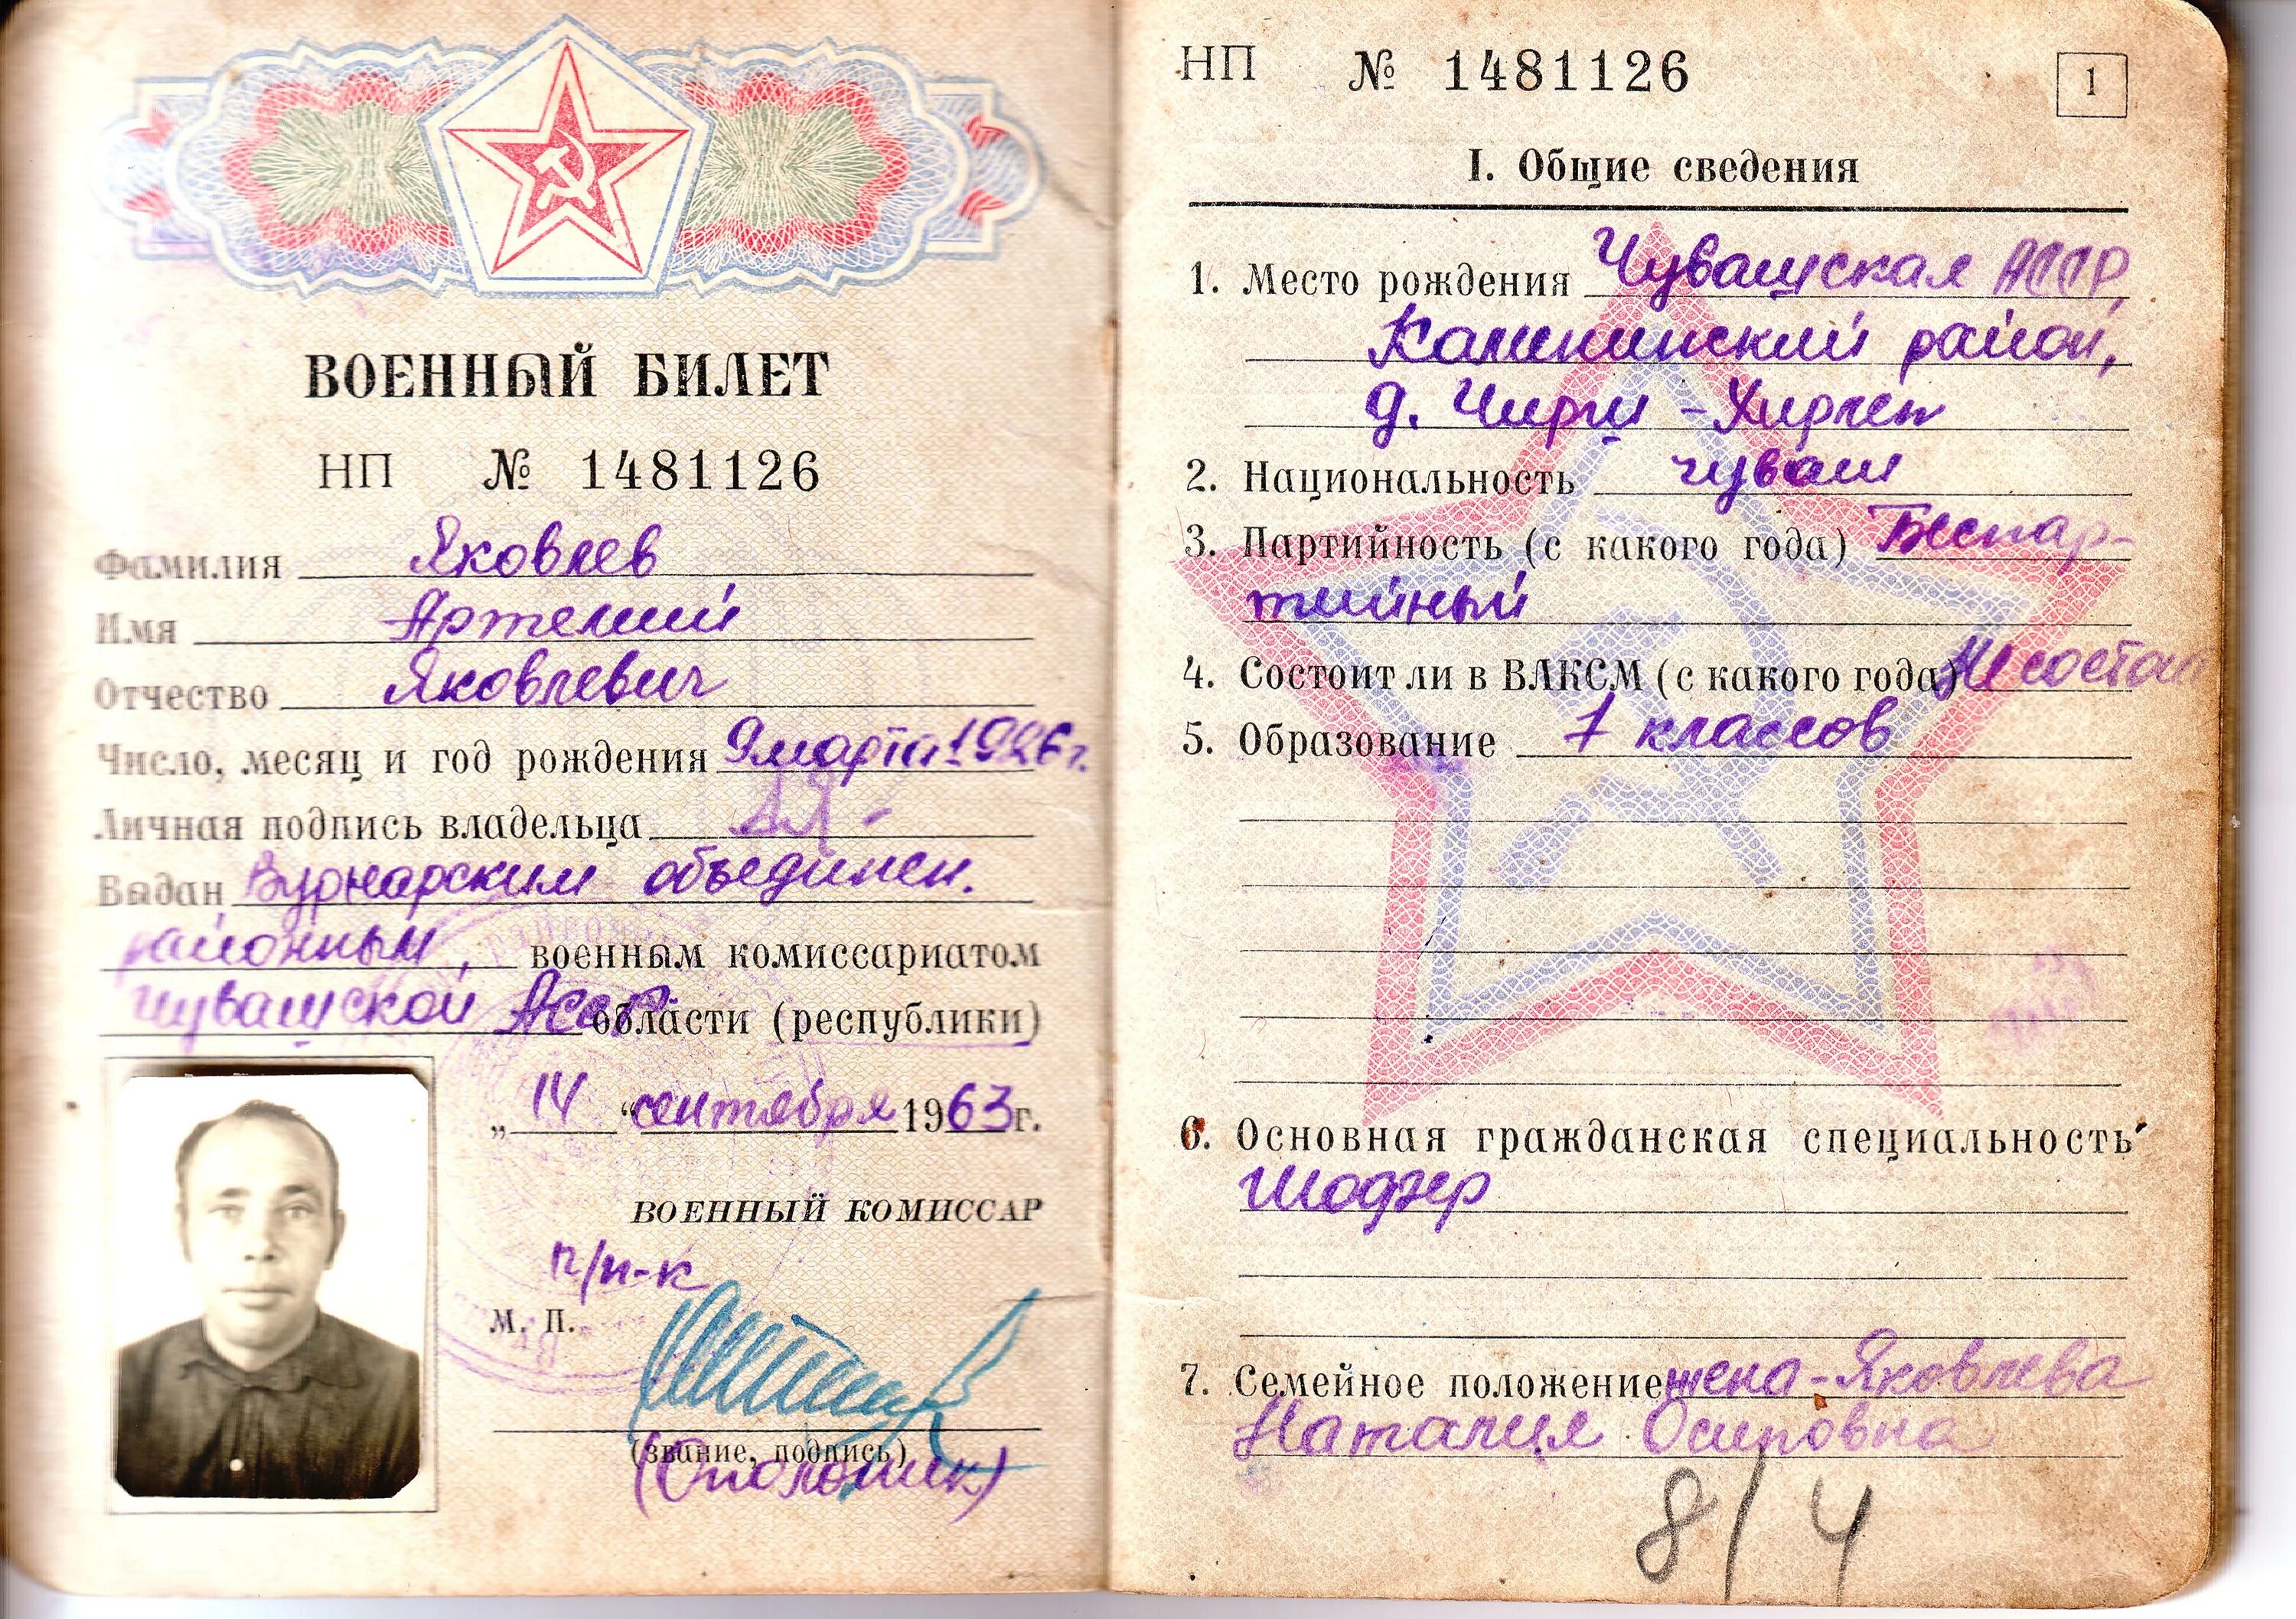 ВОЕННЫЙ БИЛЕТ
НП № 1481126
Фамилия Яковлев
Имя Артемий
Отчество Яковлевич
Число, месяц и год рождения 9 марта 1926 г.
Личная подпись владельца АЯ-
Выдан Вурнарским объединен.
районным, военным комиссариатом
Чувашской АССР области (республики)
„14“ сентября 1963 г.
ВОЕННЫЙ КОМИССАР
п/п-к
М. П.
(звание, подпись)
НП № 1481126
1
I. Общие сведения
1. Место рождения Чувашская АССР,
Калининский район,
д. Чирш-Хирлеп
2. Национальность чуваш
3. Партийность (с какого года) Беспар-
тийный
4. Состоит ли в ВЛКСМ (с какого года) Не состоял
5. Образование 7 классов
6. Основная гражданская специальность
Шофер
7. Семейное положение жена-Яковлева
Наталия Осиповна
8/4